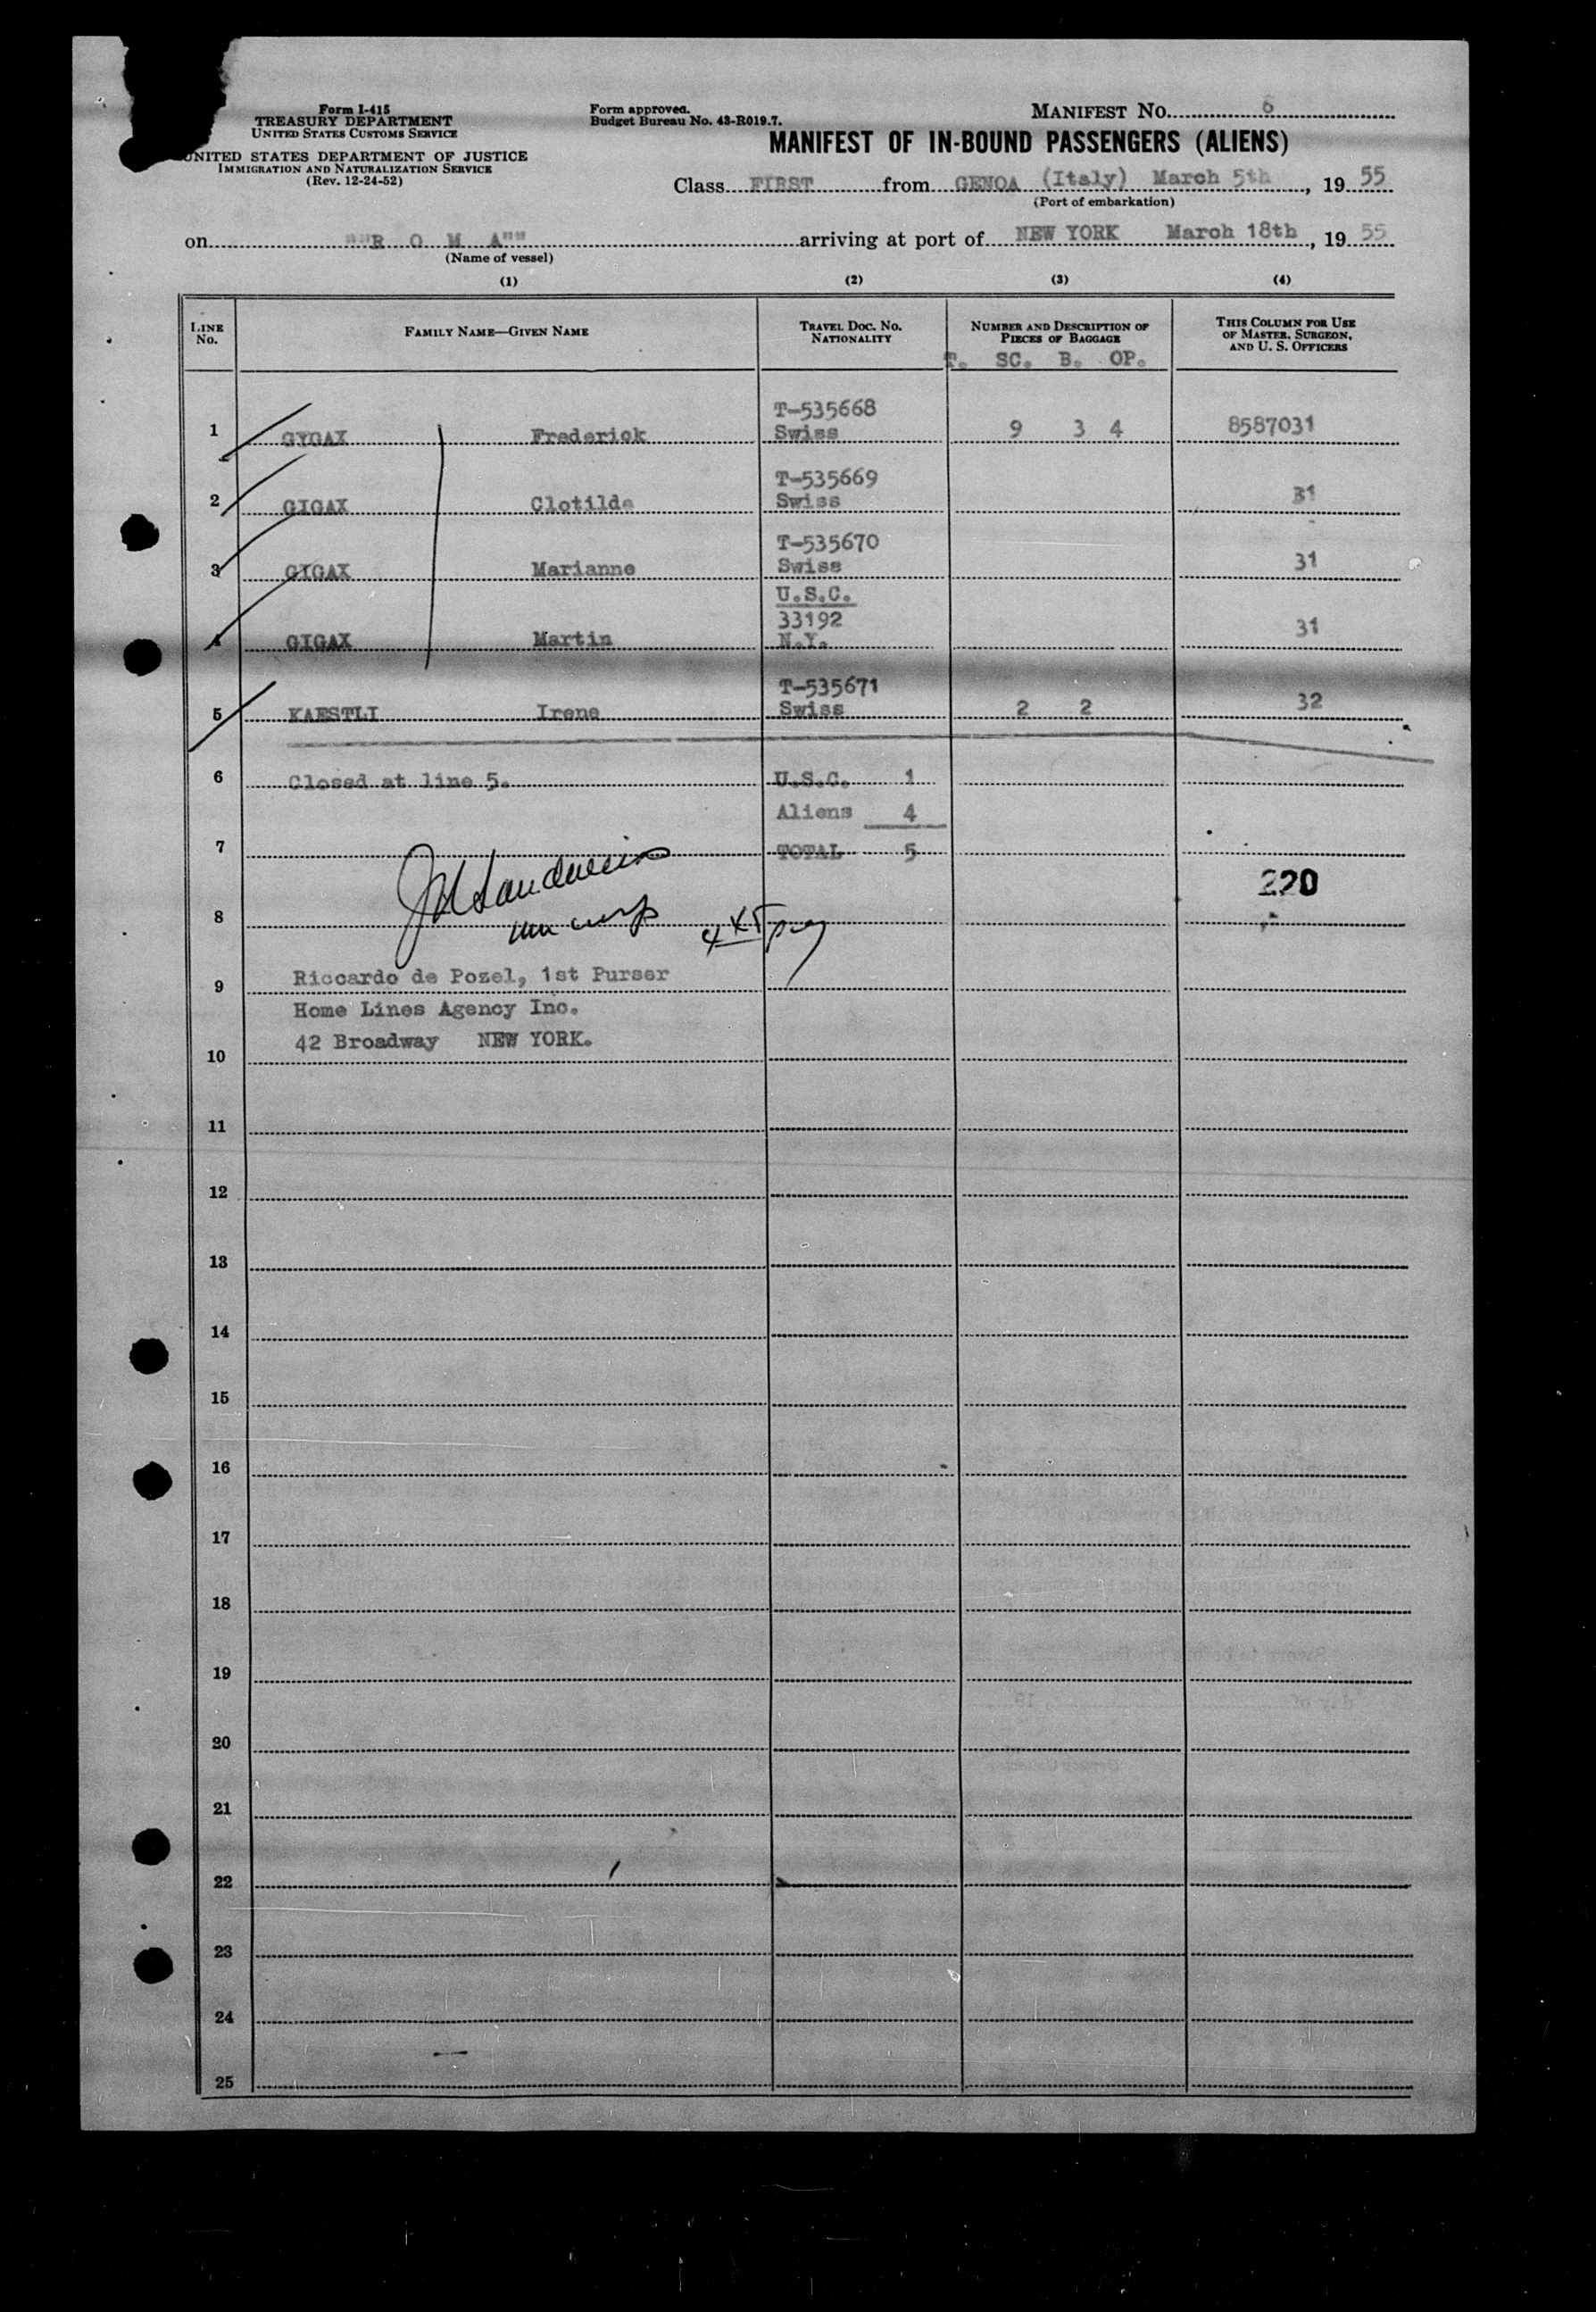 Form I-415
TREASURY DEPARTMENT
UNITED STATES CUSTOMS SERVICE
UNITED STATES DEPARTMENT OF JUSTICE
IMMIGRATION AND NATURALIZATION SERVICE
(Rev. 12-24-52)
Form approved.
Budget Bureau No. 43-R019.7.
MANIFEST NO. 6
MANIFEST OF IN-BOUND PASSENGERS (ALIENS)
Class FIRST from GENOA (Italy) March 5th, 19 55
(Port of embarkation)
on ""R O M A"" arriving at port of NEW YORK March 18th, 19 55
(Name of vessel)
(1) (2) (3) (4)
LINE NO.
FAMILY NAME—GIVEN NAME
TRAVEL DOC. NO. NATIONALITY
NUMBER AND DESCRIPTION OF PIECES OF BAGGAGE
T. SC. B. OP.
THIS COLUMN FOR USE OF MASTER, SURGEON, AND U. S. OFFICERS
T-535668
1 GYGAX Frederick Swiss 9 3 4 8587031
T-535669
2 GIGAX Clotilde Swiss 31
T-535670
3 GIGAX Marianne Swiss 31
U.S.C.
33192
4 GIGAX Martin N.Y. 31
T-535671
5 KAESTLI Irene Swiss 2 2 32
6 Closed at line 5. U.S.C. 1
Aliens 4
7 TOTAL 5
220
8
9 Riccardo de Pozel, 1st Purser
Home Lines Agency Inc.
10 42 Broadway NEW YORK.
11
12
13
14
15
16
17
18
19
20
21
22
23
24
25